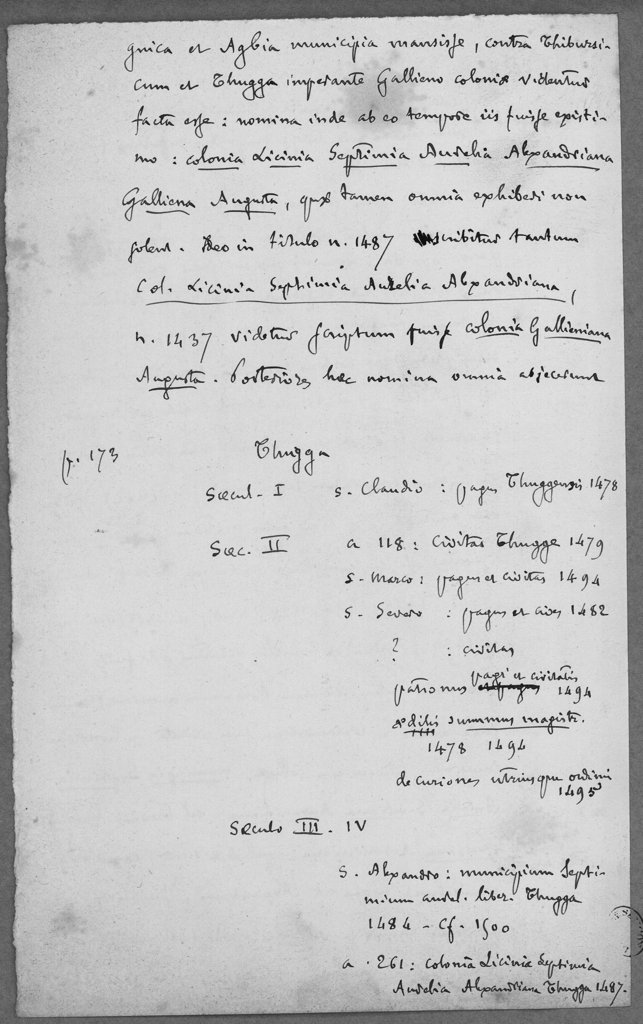 gnica et Agbia municipia mansisse, contra Thibursi-
cum et Thugga imperante Gallieno coloniæ videntur
factæ esse : nomina inde ab eo tempore iis fuisse existi-
mo : colonia Licinia Septimia Aurelia Alexandriana
Galliena Augusta, quæ tamen omnia exhiberi non
solent. Ideo in titulo n. 1487 scribitur tantum
Col. Licinia Septimia Aurelia Alexandriana,
n. 1437 videtur scriptum fuisse colonia Gallieniana
Augusta. Posteriores hæc nomina omnia abjecerunt
p. 173 Thugga
Sæcul. I s. Claudio : pagus Thuggensis 1478
Sæc. II a 118 : Civitas Thugge 1479
s. Marco : pagus et civitas 1494
s. Severo : pagus et cives 1482
? : civitas
patronus pagi et civitatis 1494
ædilis summus magistr.
1478 1494
decuriones utriusque ordinis
1495
Sæculo III. IV
s. Alexandro : municipium Septi-
mium aurel. liber. Thugga
1484 - Cf. 1500
a. 261 : colonia Licinia Septimia
Aurelia Alexandriana Thugga 1487.